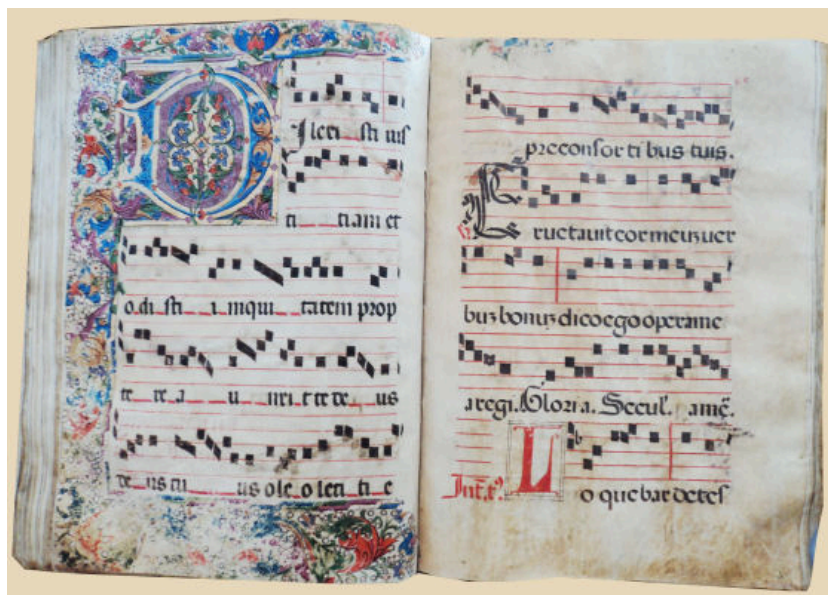 Dilexi sti ius
ti tiam et
o di sti i imqui tatem prop
te re a u nxi t te de us
de us tu us ole o leti ti e
pre confor ti bus tuis.
E ructauit cor meuz uer
buz bonuz dico ego opera me
a regi. Gloria. Secul. amē.
Int̄.t?
L o que bar de tes